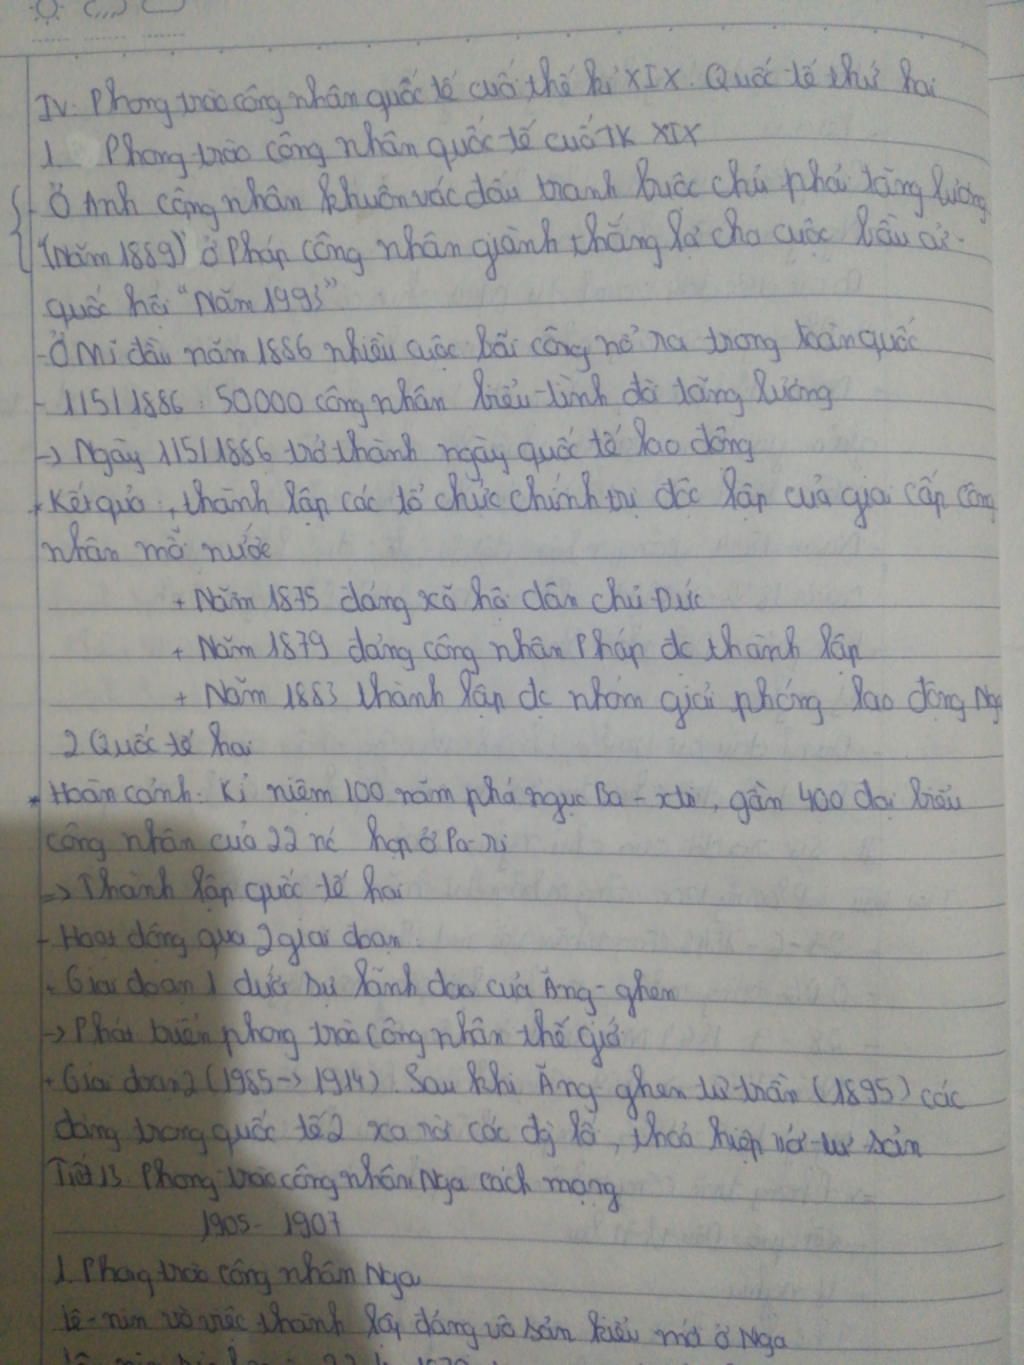 IV. Phong trào công nhân quốc tế cuối thế kỉ XIX. Quốc tế thứ hai
1 Phong trào công nhân quốc tế cuối TK XIX
- Ở Anh công nhân khuân vác đấu tranh buộc chủ phải tăng lương
(Năm 1889) ở Pháp công nhân giành thắng lợi cho cuộc bầu cử
quốc hội "Năm 1993"
- Ở Mĩ đầu năm 1886 nhiều cuộc bãi công nổ ra trong toàn quốc
- 1/5/1886: 50000 công nhân biểu-tình đòi tăng lương
-> Ngày 1/5/1886 trở thành ngày quốc tế lao động
* Kết quả: thành lập các tổ chức chính trị độc lập của giai cấp công
nhân mỗi nước
+ Năm 1875 đảng xã hội dân chủ Đức
+ Năm 1879 đảng công nhân Pháp đc thành lập
+ Năm 1883 thành lập đc nhóm giải phóng lao động Nga
2 Quốc tế hai
* Hoàn cảnh: Kỉ niệm 100 năm phá ngục Ba-xti, gần 400 đại biểu
công nhân của 22 nc họp ở Pa-ri
=> Thành lập quốc tế hai
- Hoạt động qua 2 giai đoạn:
+ Giai đoạn 1 dưới sự lãnh đạo của Ăng-ghen
-> Phát triển phong trào công nhân thế giới
+ Giai đoạn 2 (1985 -> 1914). Sau khi Ăng-ghen từ trần (1895) các
đảng trong quốc tế 2 xa rời các đg lối, thoả hiệp với tư sản
Tiết 13 Phong trào công nhân Nga cách mạng
1905 - 1907
1 Phong trào công nhân Nga
Lê-nin và việc thành lập đảng vô sản kiểu mới ở Nga